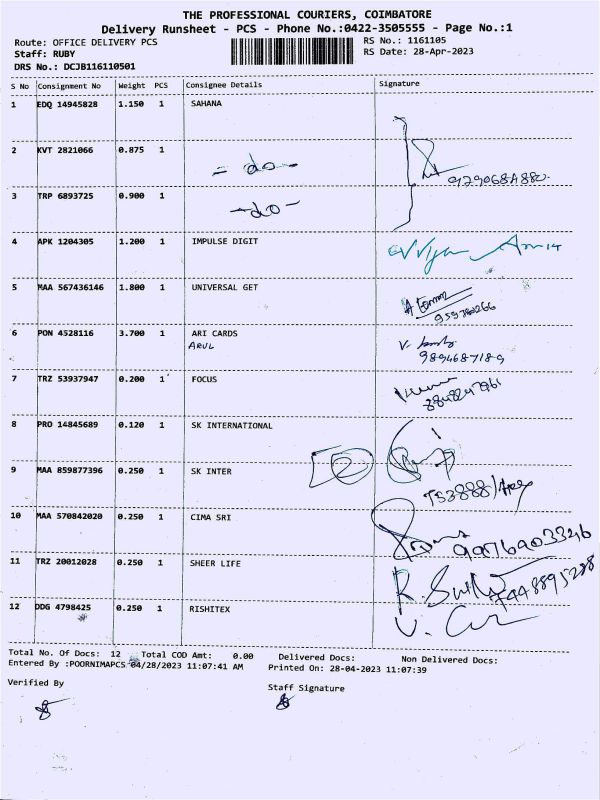 THE PROFESSIONAL COURIERS, COIMBATORE
Delivery Runsheet - PCS - Phone No.:0422-3505555 - Page No.:1
Route: OFFICE DELIVERY PCS RS No.: 1161105
Staff: RUBY RS Date: 28-Apr-2023
DRS No.: DCJB116110501
S No Consignment No Weight PCS Consignee Details Signature
1 EDQ 14945828 1.150 1 SAHANA
2 KVT 2821066 0.875 1
- do -
3 TRP 6893725 0.900 1
- do -
4 APK 1204305 1.200 1 IMPULSE DIGIT
5 MAA 567436146 1.800 1 UNIVERSAL GET
6 PON 4528116 3.700 1 ARI CARDS
ARUL
9894687189
7 TRZ 53937947 0.200 1 FOCUS
8 PRO 14845689 0.120 1 SK INTERNATIONAL
9 MAA 859877396 0.250 1 SK INTER
10 MAA 570842020 0.250 1 CIMA SRI
11 TRZ 20012028 0.250 1 SHEER LIFE
12 DDG 4798425 0.250 1 RISHITEX
Total No. Of Docs: 12 Total COD Amt: 0.00 Delivered Docs: Non Delivered Docs:
Entered By :POORNIMAPCS 04/28/2023 11:07:41 AM Printed On: 28-04-2023 11:07:39
Verified By Staff Signature